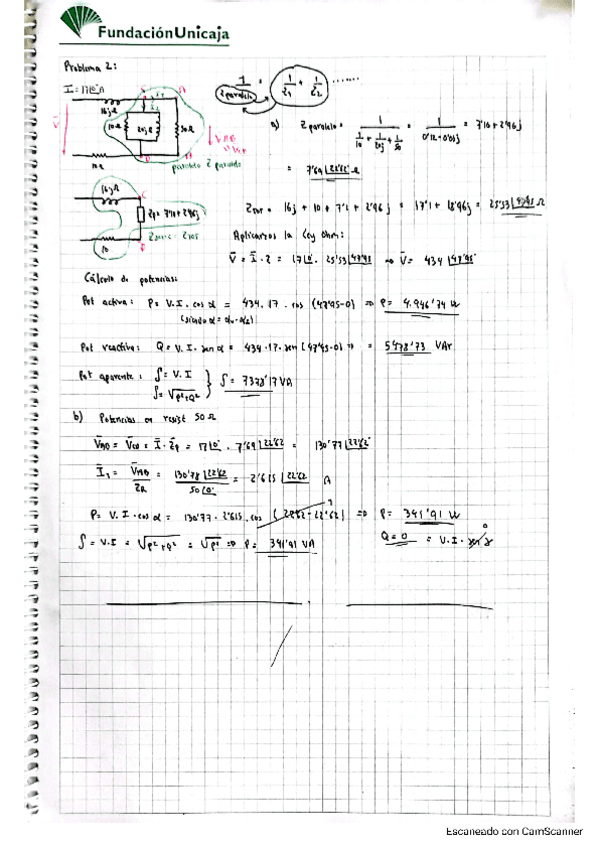 FundaciónUnicaja
Problema 2:
I = 17∠0° A
16jΩ
10Ω
20jΩ
50Ω
10Ω
paralelo Z paralelo
1/Z paralelo = 1/Z1 + 1/Z2 .......
a) Z paralelo = 1/(1/10 + 1/20j + 1/50) = 1/(0'12+0'05j) = 7'10 + 2'96j
= 7'69∠22'62° Ω
16jΩ
Zp = 7'10 + 2'96j
10
Ztot = 16j + 10 + 7'1 + 2'96j = 17'1 + 18'96j = 25'53∠47'95 Ω
Aplicamos la ley ohm:
V = I · Z = 17∠0° · 25'53∠47'95 => V = 434∠47'95°
Cálculo de potencias:
Pot activa: P = V.I. cos α = 434 · 17 · cos (47'95-0) => P = 4.946'74 W
Pot reactiva: Q = V.I. sen α = 434·17·sen (47'95-0) = 5478'73 VAr
Pot aparente: S = V.I
S = √P²+Q²
S = 7378'17 VA
b) Potencias en resist 50Ω
VAB = VCD = I · Zp = 17∠0° · 7'69∠22'62 = 130'77∠22'62°
I1 = VAB/ZR = 130'78∠22'62/50∠0° = 2'615∠22'62 A
P = V.I.cos α = 130'77 · 2'615 . cos (22'62-22'62) => P = 341'91 W
S = V.I = √P²+Q² = √P² => P = 341'91 VA
Q = 0 = V.I. sen α
0
Escaneado con CamScanner